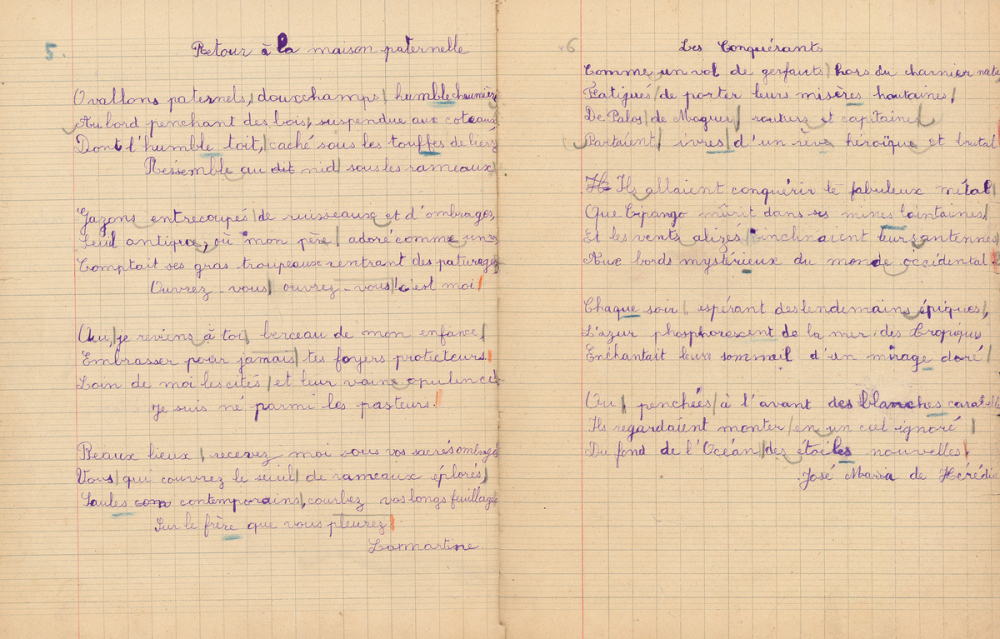 5.
Retour à la maison paternelle
O vallons paternels, doux champs, humble chaumière
Au bord penchant des bois, suspendue aux coteaux
Dont l'humble toit, caché sous les touffes de lierre
Ressemble au dit nid sous les rameaux
Gazons entrecoupés de ruisseaux et d'ombrages
Seuil antique, où mon père adoré comme un
Comptait ses gras troupeaux rentrant des paturages
Ouvrez-vous ouvrez-vous! c'est moi
Oui, je reviens à toi, berceau de mon enfance,
Embrasser pour jamais tes foyers protecteurs.
Loin de moi les cités et leur vaine opulence
Je suis né parmi les pasteurs.
Beaux lieux, recevez moi sous vos sacrés ombrages
Vous qui couvrez le seuil de rameaux éplorés,
Saules contemporains, courbez vos longs feuillages
Sur le frère que vous pleurez
Lamartine
6
Les Conquérants
Comme un vol de gerfauts hors du charnier nata
Fatigués de porter leurs misères hautaines,
De Palos de Moguer, routiers et capitaines
Partaient, ivres d'un rêve héroïque et brutal
Ils allaient conquérir le fabuleux métal
Que Cipango mûrit dans ses mines lointaines,
Et les vents alizés inclinaient leurs antennes
Aux bords mystérieux du monde occidental
Chaque soir, espérant des lendemains épiques,
L'azur phosphorescent de la mer des Tropiques
Enchantait leur sommeil d'un mirage doré
Ou, penchées à l'avant des blanches
Ils regardaient monter en un ciel ignoré
Du fond de l'Océan des étoiles nouvelles
José Maria de Hérédia